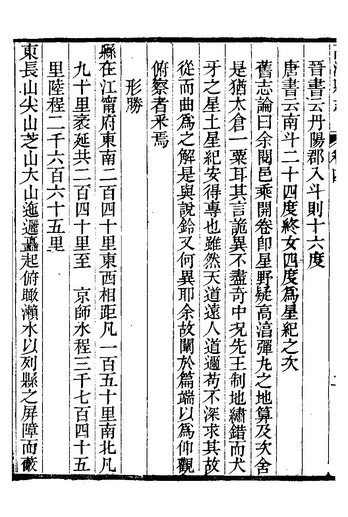 晉書云丹陽郡入斗則十六度
唐書云南斗二十四度終女四度爲星紀之次
舊志論曰余閱邑乘開卷卽星野疑高湻彈丸之地算及次舍
是猶太倉一粟耳其言詭異不盡竒中况先王制地繡錯而犬
牙之星土星紀安得專也雖然天道遠人道邇苟不深求其故
從而曲爲之解是與說鈴又何異耶余故闡於篇端以爲仰觀
俯察者釆焉
形勝
縣在江甯府東南二百四十里東西相距凡一百五十里南北凡
九十里袤延共二百四十里至　京師水程三千七百四十五
里陸程二千六百六十五里
東長山尖山芝山大山迤邐矗起俯瞰瀨水以列縣之屏障而蔽